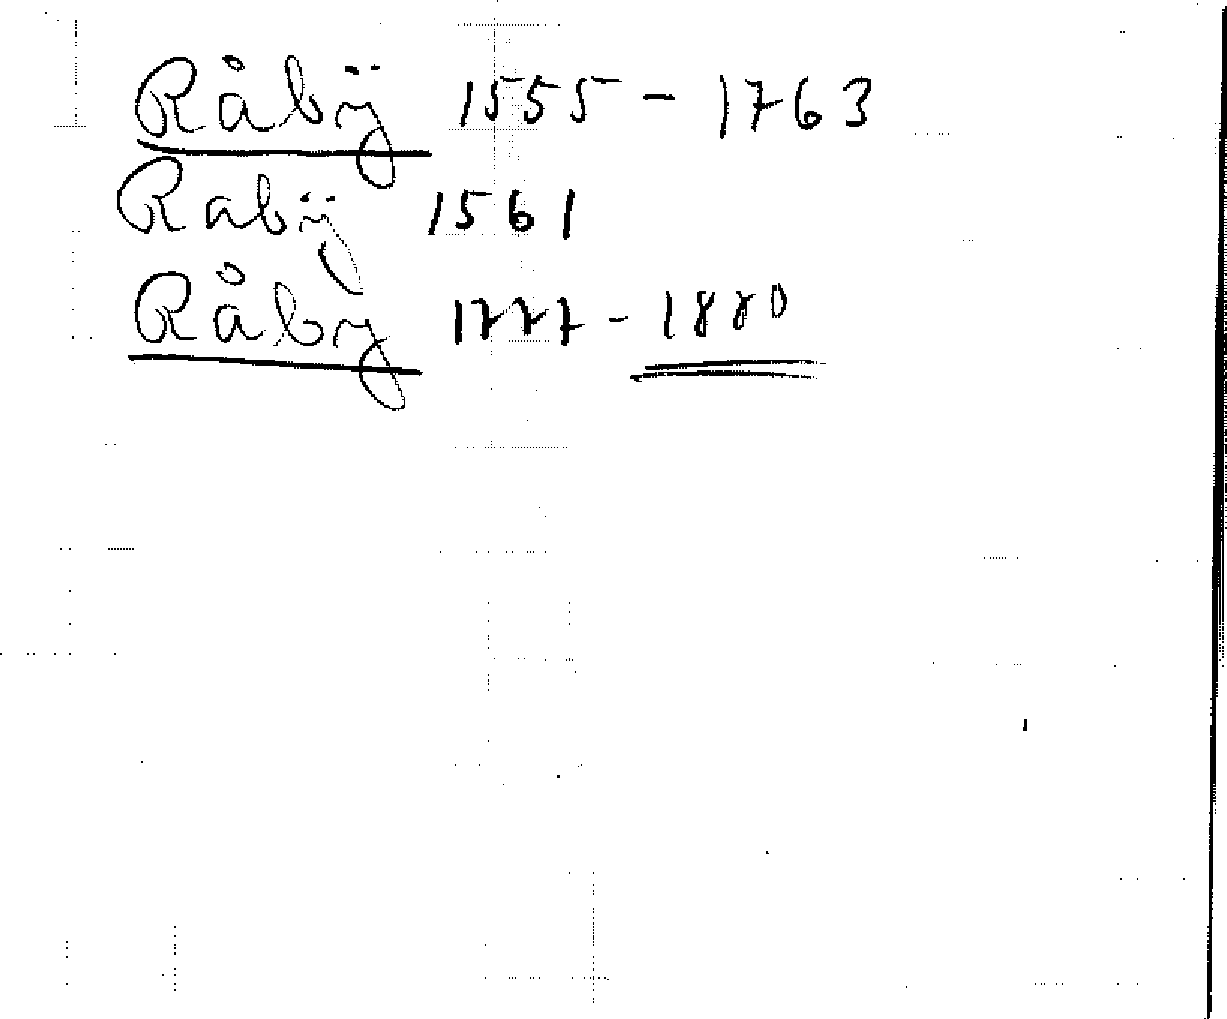 Råbÿ 1555 - 1763
Rabÿ 1561
Råby 1777 - 1880